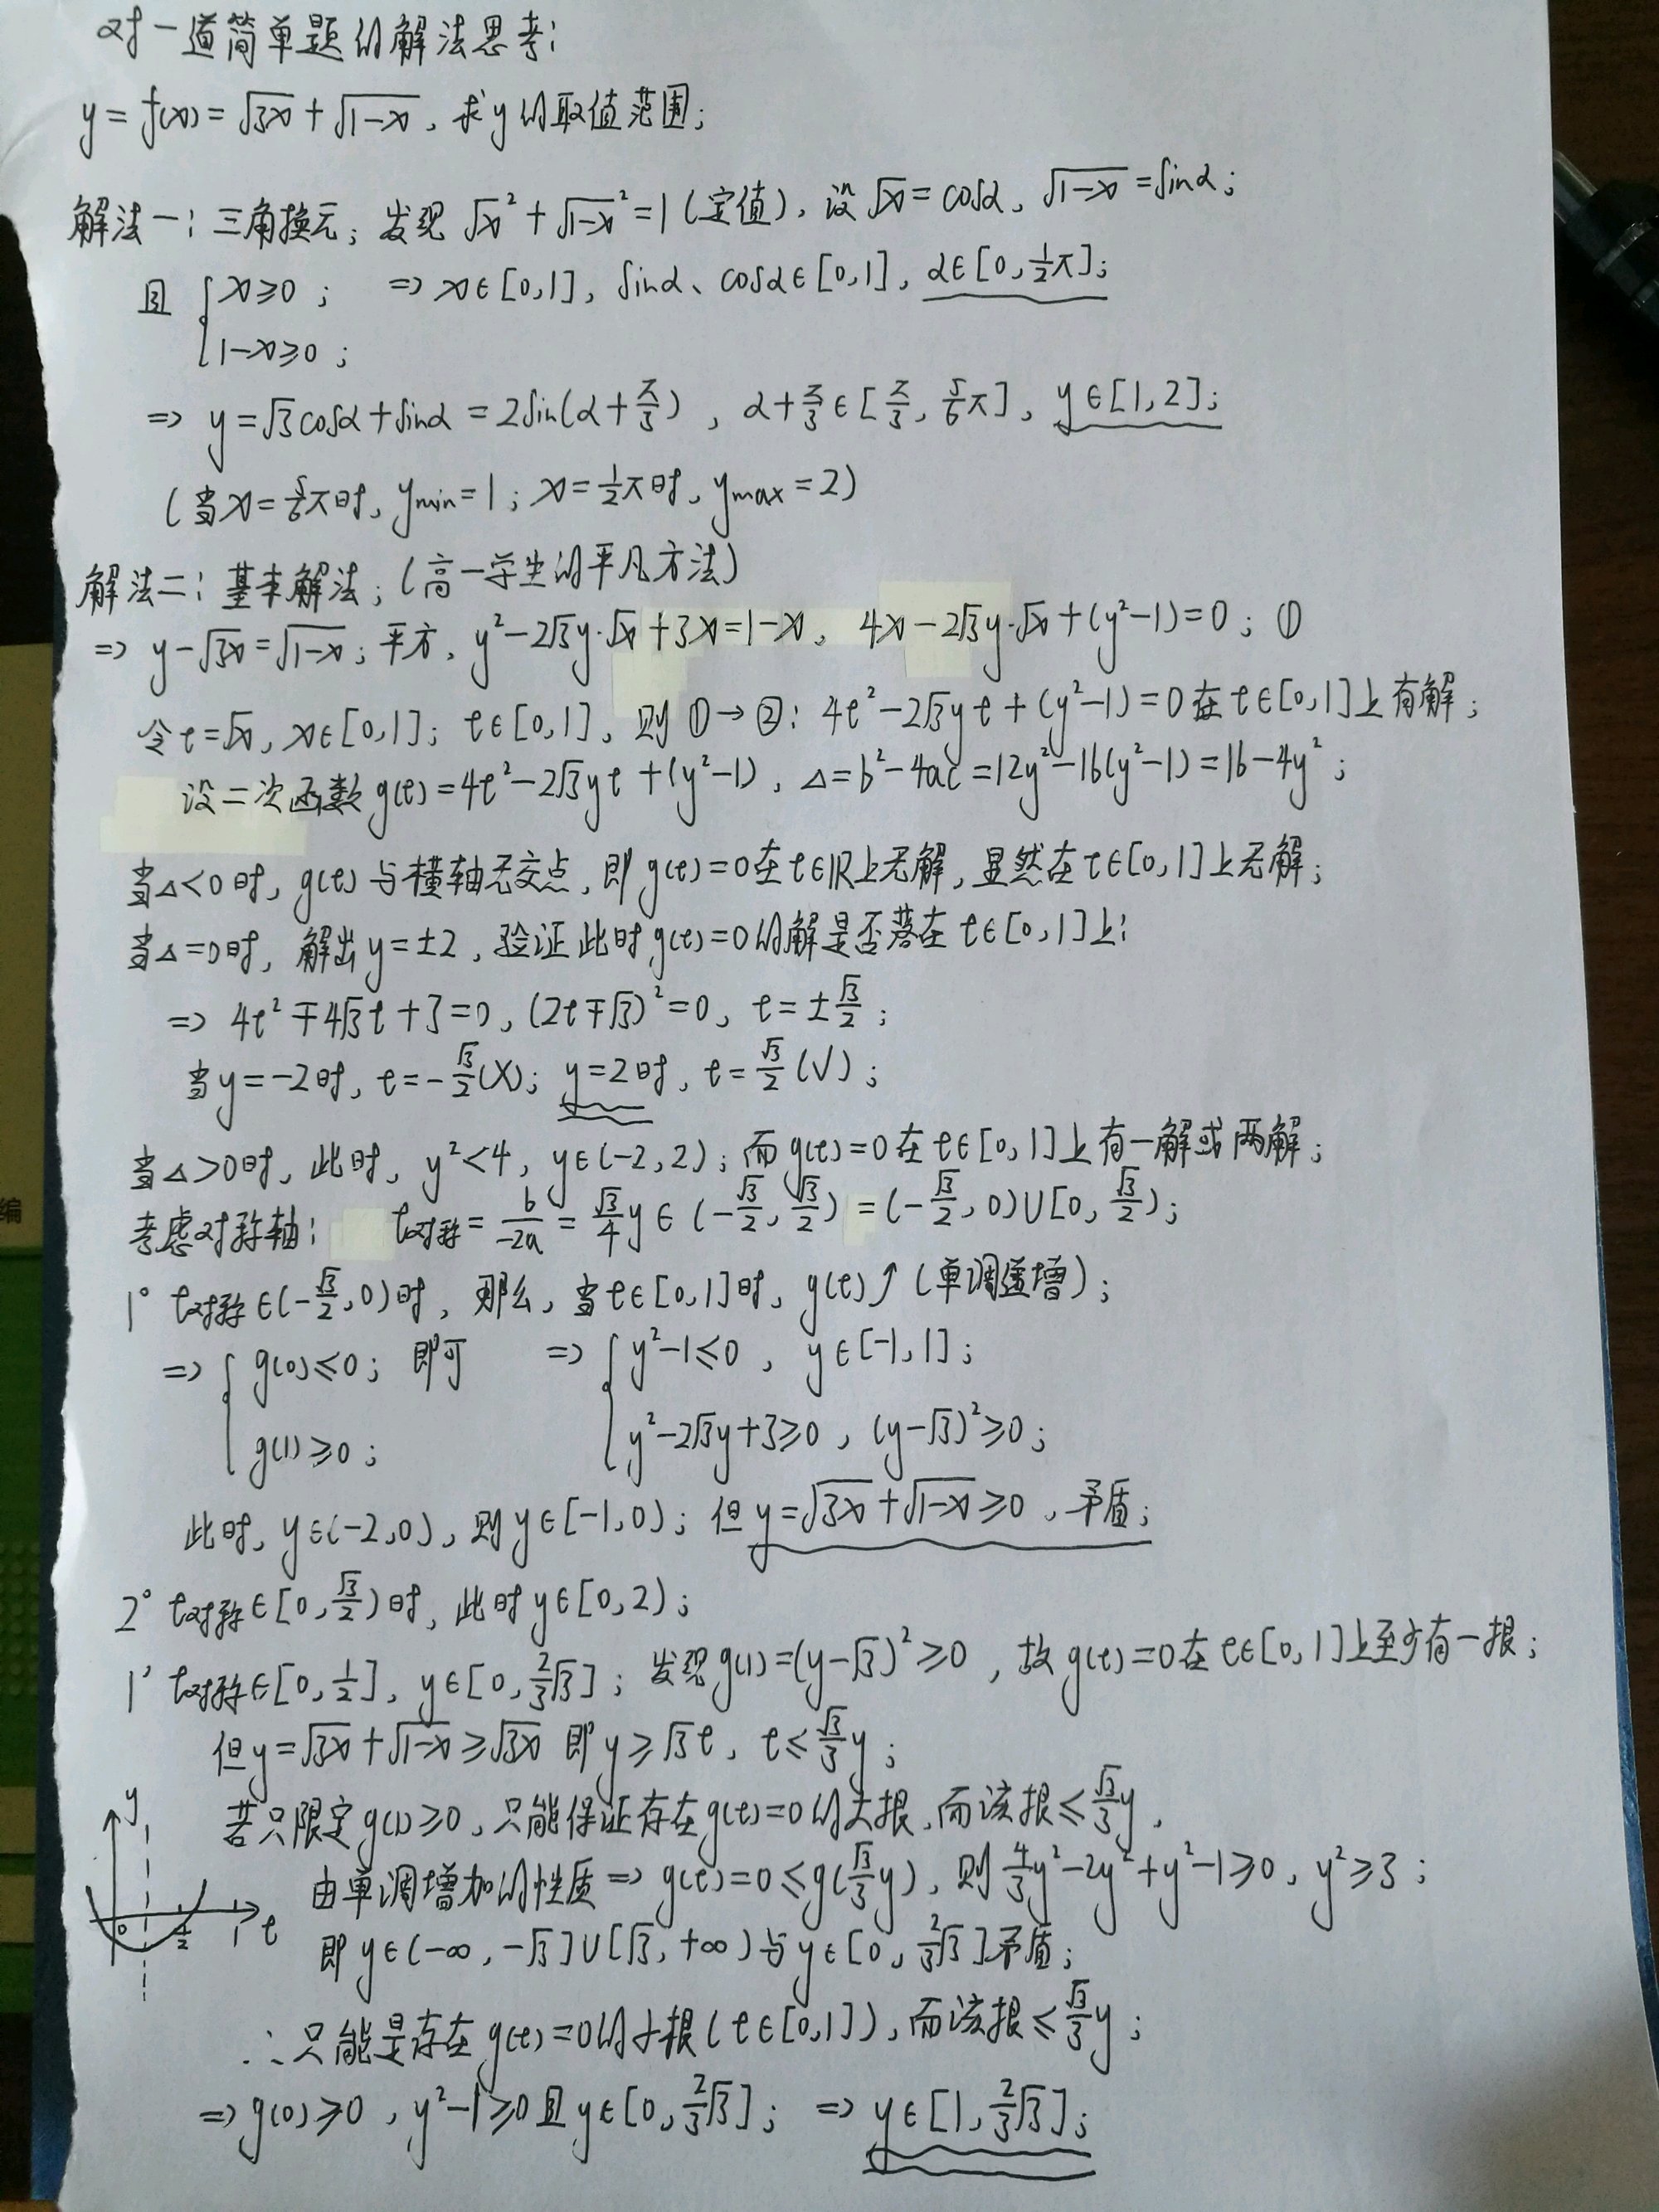 对一道简单题的解法思考:
y=f(x)=√3x+√1-x, 求y的取值范围;
解法一: 三角换元; 发现 √x²+√1-x²=1(定值), 设√x=cosα, √1-x=sinα;
且 { x≥0; ⇒ x∈[0,1], sinα、cosα∈[0,1], α∈[0,1/2π];
1-x≥0;
⇒ y=√3cosα+sinα=2sin(α+π/3), α+π/3∈[π/3, 5/6π], y∈[1,2];
(当x=5/6π时, ymin=1; x=1/2π时, ymax=2)
解法二: 基本解法; (高一学生的平凡方法)
⇒ y-√3x=√1-x; 平方, y²-2√3y·√x+3x=1-x, 4x-2√3y·√x+(y²-1)=0; ①
令t=√x, x∈[0,1]; t∈[0,1], 则①→②: 4t²-2√3yt+(y²-1)=0在t∈[0,1]上有解;
设二次函数g(t)=4t²-2√3yt+(y²-1), Δ=b²-4ac=12y²-16(y²-1)=16-4y²;
当Δ<0时, g(t)与横轴无交点, 即g(t)=0在t∈R上无解, 显然在t∈[0,1]上无解;
当Δ=0时, 解出y=±2, 验证此时g(t)=0的解是否落在t∈[0,1]上:
⇒ 4t²∓4√3t+3=0, (2t∓√3)²=0, t=±√3/2;
当y=-2时, t=-√3/2(X); y=2时, t=√3/2(√);
当Δ>0时, 此时, y²<4, y∈(-2,2); 而g(t)=0在t∈[0,1]上有一解或两解;
考虑对称轴: t对称=b/-2a=√3/4y∈(-√3/2, √3/2)=(-√3/2, 0)∪[0, √3/2);
1° t对称∈(-√3/2,0)时, 那么, 当t∈[0,1]时, g(t)↗(单调递增);
⇒ { g(0)≤0; 即可 ⇒ { y²-1≤0, y∈[-1,1];
g(1)≥0; y²-2√3y+3≥0, (y-√3)²≥0;
此时, y∈(-2,0), 则y∈[-1,0); 但y=√3x+√1-x≥0, 矛盾;
2° t对称∈[0,√3/2)时, 此时y∈[0,2);
1' t对称∈[0,1/2], y∈[0,2/3√3]; 发现g(1)=(y-√3)²≥0, 故g(t)=0在t∈[0,1]上至少有一根;
但y=√3x+√1-x≥√3x 即y≥√3t, t≤√3/3y;
若只限定g(1)≥0, 只能保证存在g(t)=0的大根, 而该根≤√3/3y,
由单调增加的性质⇒g(t)=0≤g(√3/3y), 则4/3y²-2y²+y²-1≥0, y²≥3;
即y∈(-∞,-√3]∪[√3,+∞)与y∈[0,2/3√3]矛盾;
y
0 1/2 1 t
∴只能是存在g(t)=0的小根(t∈[0,1]), 而该根≤√3/3y;
⇒g(0)≥0, y²-1≥0且y∈[0,2/3√3]; ⇒ y∈[1,2/3√3];
编